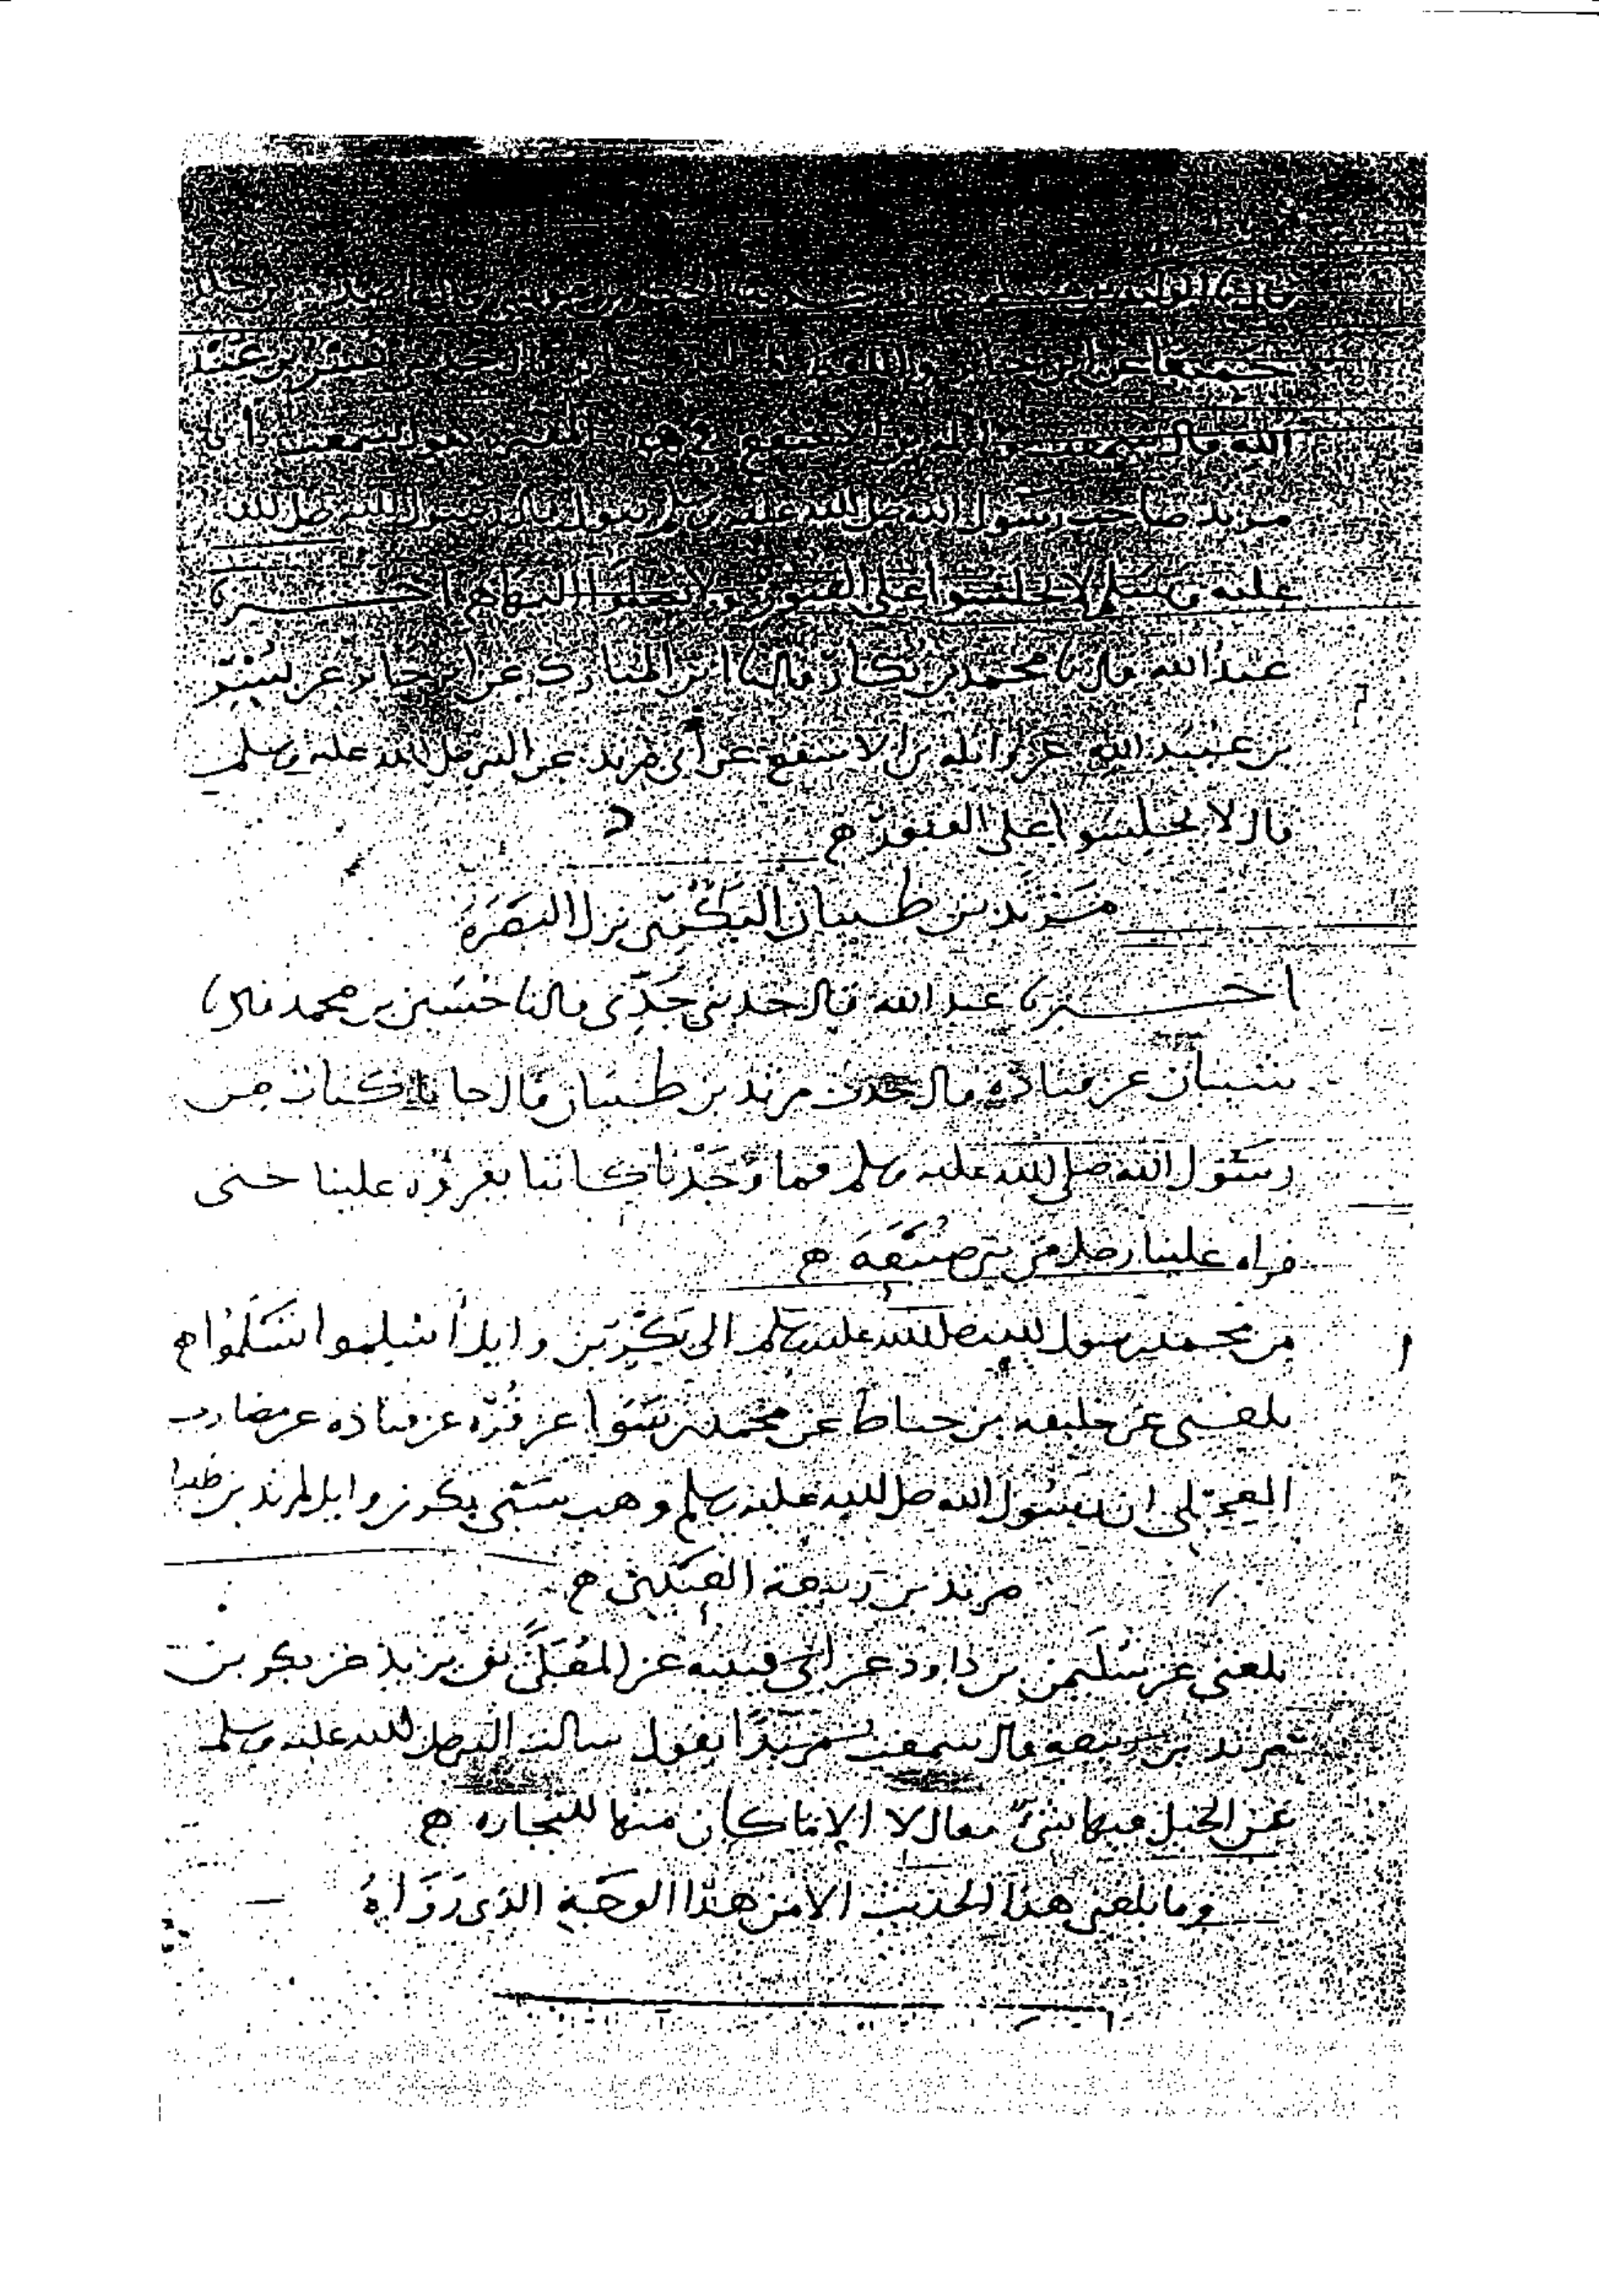 جميعا عن ابن جابر واللفظ بسر بن عبيد
الله قال سمعت واثلة بن الاسقع يقول سمعت أبا
مرثد صاحب رسول الله صلى الله عليه وسلم يقول قال رسول الله صلى الله
عليه وسلم لا تجلسوا على القبور ولا تصلوا اليها ه اخبرنا
عبد الله قال نا محمد بن بكار قال نا ابن المبارك عن ابن جابر عن بُسْر
بن عبيد الله عن واثلة بن الاسقع عن أبي مرثد عن النبي صلى الله عليه وسلم
قال لا تجلسوا على القبور ه
مَرْثد بن ظبيان البَكْريّ نزل البَصَرَة
اخبرنا عبد الله قال حدثني جَدِّي قال نا حُسَين بن محمد قال نا
شيبان عن قتادة قال حدث مرثد بن ظبيان قال جانا كتاب من
رسُول الله صلى الله عليه وسلم فما وَجَدْنا كاتبا يقرؤه علينا حتى
قراه علينا رجل من بني ضُبَيْعَة ه
من محمد رسول الله صلى الله عليه وسلم الى بَكْر بن وايل أسْلِموا تسْلَمُوا ه
بلغني عن خليفه بن خياط عن محمد بن سَوَا عن قُرّه عن قتاده عن مضارب
العِجْلي ان رسُول الله صلى الله عليه وسلم وهب سَبْي بكر بن وايل لمرثد بن ظبيا
مرثد بن ربيعة العَبْديّ ه
بلغني عن سُلَيمن بن داود عن ابي قتيبه عن المُعَلَّى بن يزيد عن بكر بن
مرثد بن ربيعه قال سمعت مَرْثدًا يقول سالت النبي صلى الله عليه وسلم
عن الخيل فيها شيْء فقال لا الا ما كان منها للتجاره ه
وما بلغني هذا الحديث الا من هذا الوجه الذي رَوَاهُ